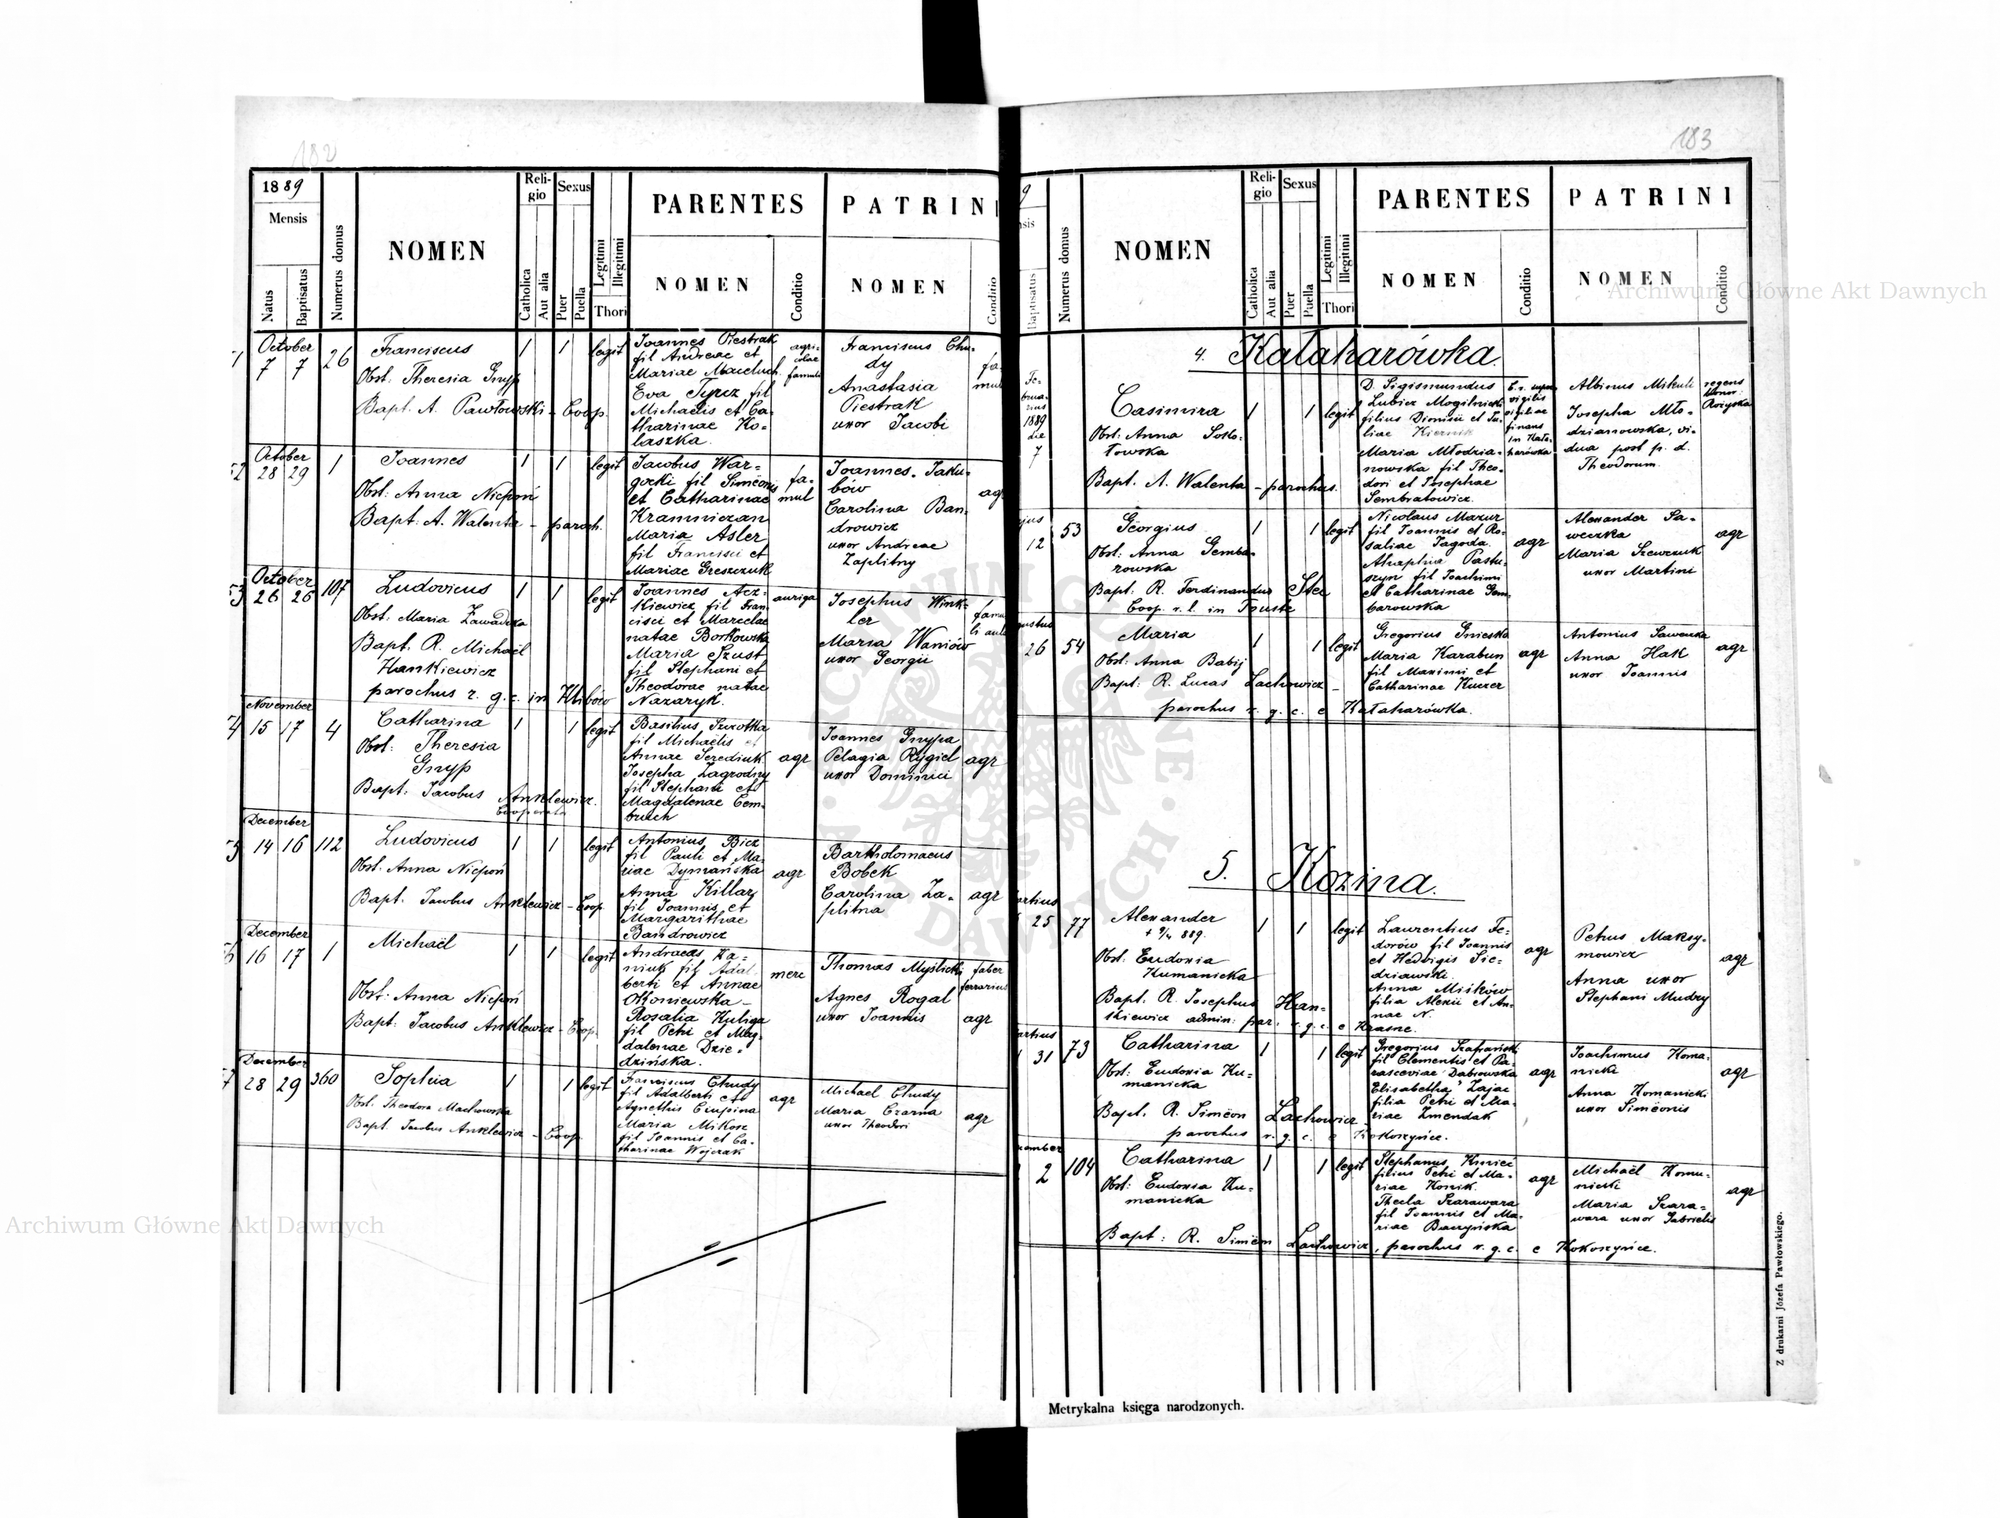 182
1889
Mensis
Natus
Baptisatus
Numerus domus
NOMEN
Reli-
gio
Catholica
Aut alia
Sexus
Puer
Puella
Legitimi
Illegitimi
Thori
PARENTES
NOMEN
Conditio
PATRINI
NOMEN
Conditio
October
7 7 26
Franciscus
Obst. Theresia Gnyp
Bapt. A. Pawłowski - Coop.
1 1 legit
Joannes Piestrak
fil Andreae et
Mariae
Eva Tyrcz fil
Michaelis et Ca-
tharinae Ko-
laszka.
agri-
colae
famuli
Franciscus Chu-
dy
Anastasia
Piestrak
uxor Jacobi
October
28 29 1
Joannes
Obst: Anna Niepoń
Bapt: A. Walenta - paroch.
1 1 legit
Jacobus War-
gocki fil Simeonis
et Catharinae
Kramniczan
Maria Asler
fil Francisci et
Mariae Greszczuk
fa-
mul
Joannes Jaku-
bów
Carolina Ban-
drowicz
uxor Andreae
Zaplitny
agr
October
26 26 107
Ludovicus
Obst. Maria Zawadzka
Bapt. R. Michaël
Hankiewicz
parochus r. g. c. in Klibów
1 1 legit
Joannes Acz-
kiewicz fil Fran-
cisci et Marcelae
natae Borkowska
Maria Szust
fil Stephani et
Theodorae natae
Nazaryk.
auriga
Josephus Wink-
ler
Maria Waniów
uxor Georgii
November
15 17 4
Catharina
Obst: Theresia
Gnyp
Bapt. Jacobus Anklewicz.
1 1 legit
Basilius Szwotka
fil Michaëlis et
Annae Serediuk
Josepha Zagrodny
fil Stephani et
Magdalenae Cem-
bruch
agr
Joannes Gnypa
Pelagia Rygiel
uxor Dominici
agr
December
14 16 112
Ludovicus
Obst. Anna Niepoń
Bapt. Jacobus Anklewicz - Coop.
1 1 legit
Antonius Bicz
fil Pauli et Ma-
riae Dymańska
Anna Killar
fil Joannis et
Margarithae
Bandrowicz
agr
Bartholomaeus
Bobek
Carolina Za-
plitna
agr
December
16 17 1
Michaël
Obst: Anna Niepoń
Bapt: Jacobus Anklewicz - Coop.
1 1 legit
Andreas Ka-
niuk fil Adal-
berti et Annae
Okoniewska -
Rosalia Kuliga
fil Petri et Mag-
dalenae Dzie-
dzińska.
merc
Thomas Myślicki
Agnes Rogal
uxor Joannis
faber
ferrarius
agr
December
28 29 360
Sophia
Obst. Theodora Machowska
Bapt. Jacobus Anklewicz - Coop.
1 1 legit
Franciscus Chudy
fil Adalberti et
Agnethis Ciupina
Maria Mikosz
fil Joannis et Ca-
tharinae Wojczak
agr
Michaël Chudy
Maria Czarna
uxor Theodori
agr
183
9
Baptisatus
Numerus domus
NOMEN
Reli-
gio
Catholica
Aut alia
Sexus
Puer
Puella
Legitimi
Illegitimi
Thori
PARENTES
NOMEN
Conditio
PATRINI
NOMEN
Conditio
4. Kałaharówka.
1889
die
7
Casimira
Obst: Anna Soko-
łowska
Bapt. A. Walenta - parochus.
1 1 legit
D. Sigismundus
Lubicz Mogilnicki
filius Dionisii et Ju-
liae Kiernik
Maria Młodzia-
nowska fil Theo-
dori et Josephae
Sembratowicz.
Albinus Mikuli
Josepha Mło-
dzianowska, vi-
dua post p. d.
Theodorum
12 53
Georgius
Obst. Anna Gemba-
rowska
Bapt. R. Ferdinandus Stec
Coop. r. l. in Touste
1 1 legit
Nicolaus Mazur
fil Joannis et Ro-
saliae Jagoda.
Ahaphia Pastu-
szyn fil Joachimi
et Catharinae Gem-
barowska
agr
Alexander Sa-
weczka
Maria Szewczuk
uxor Martini
agr
26 54
Maria
Obst: Anna Babij
Bapt: R. Lucas Lachowicz -
parochus r. g. c. e Kałaharówka.
1 1 legit
Gregorius Gnieska
Maria Karabun
fil Maximi et
Catharinae Kuczer
agr
Antonius Saweczka
Anna Hak
uxor Joannis
agr
5. Kozina.
25 77
Alexander
+ 9/4 889.
Obst: Eudoxia
Kumanicka
Bapt. R. Josephus Han-
kiewicz admin: par. r. g. c. e Krasne.
1 1 legit
Laurentius Fe-
dorów fil Joannis
et Hedvigis Sie-
dziawski.
Anna Miśków
filia Alexii et An-
nae N.
agr
Petrus Maksy-
mowicz
Anna uxor
Stephani Mudry
agr
31 73
Catharina
Obst: Eudoxia Ku-
manicka
Bapt. R. Simeon Lachowicz
parochus r. g. c. e Kokoszyńce.
1 1 legit
Gregorius Szafrański
fil Clementis et Pa-
rasceviae Dabrowska
Elisabetha Zajac
filia Petri et Ma-
riae Zmendak
agr
Joachimus Koma-
nicki
Anna Komanicki
uxor Simeonis
agr
2 104
Catharina
Obst: Eudoxia Ku-
manicka
Bapt: R. Simeon Lachowicz, parochus r. g. c. e Kokoszyńce.
1 1 legit
Stephanus Kmieć
filius Petri et Ma-
riae Konik.
Thecla Szarawara
fil Joannis et Ma-
riae Baczyńska
agr
Michaël Komu-
nicki
Maria Szara-
wara uxor Gabrielis
agr
Metrykalna księga narodzonych.
Z drukarni Józefa Pawłowskiego.
Archiwum Główne Akt Dawnych
Archiwum Główne Akt Dawnych
ARCHIWUM GŁÓWNE AKT DAWNYCH